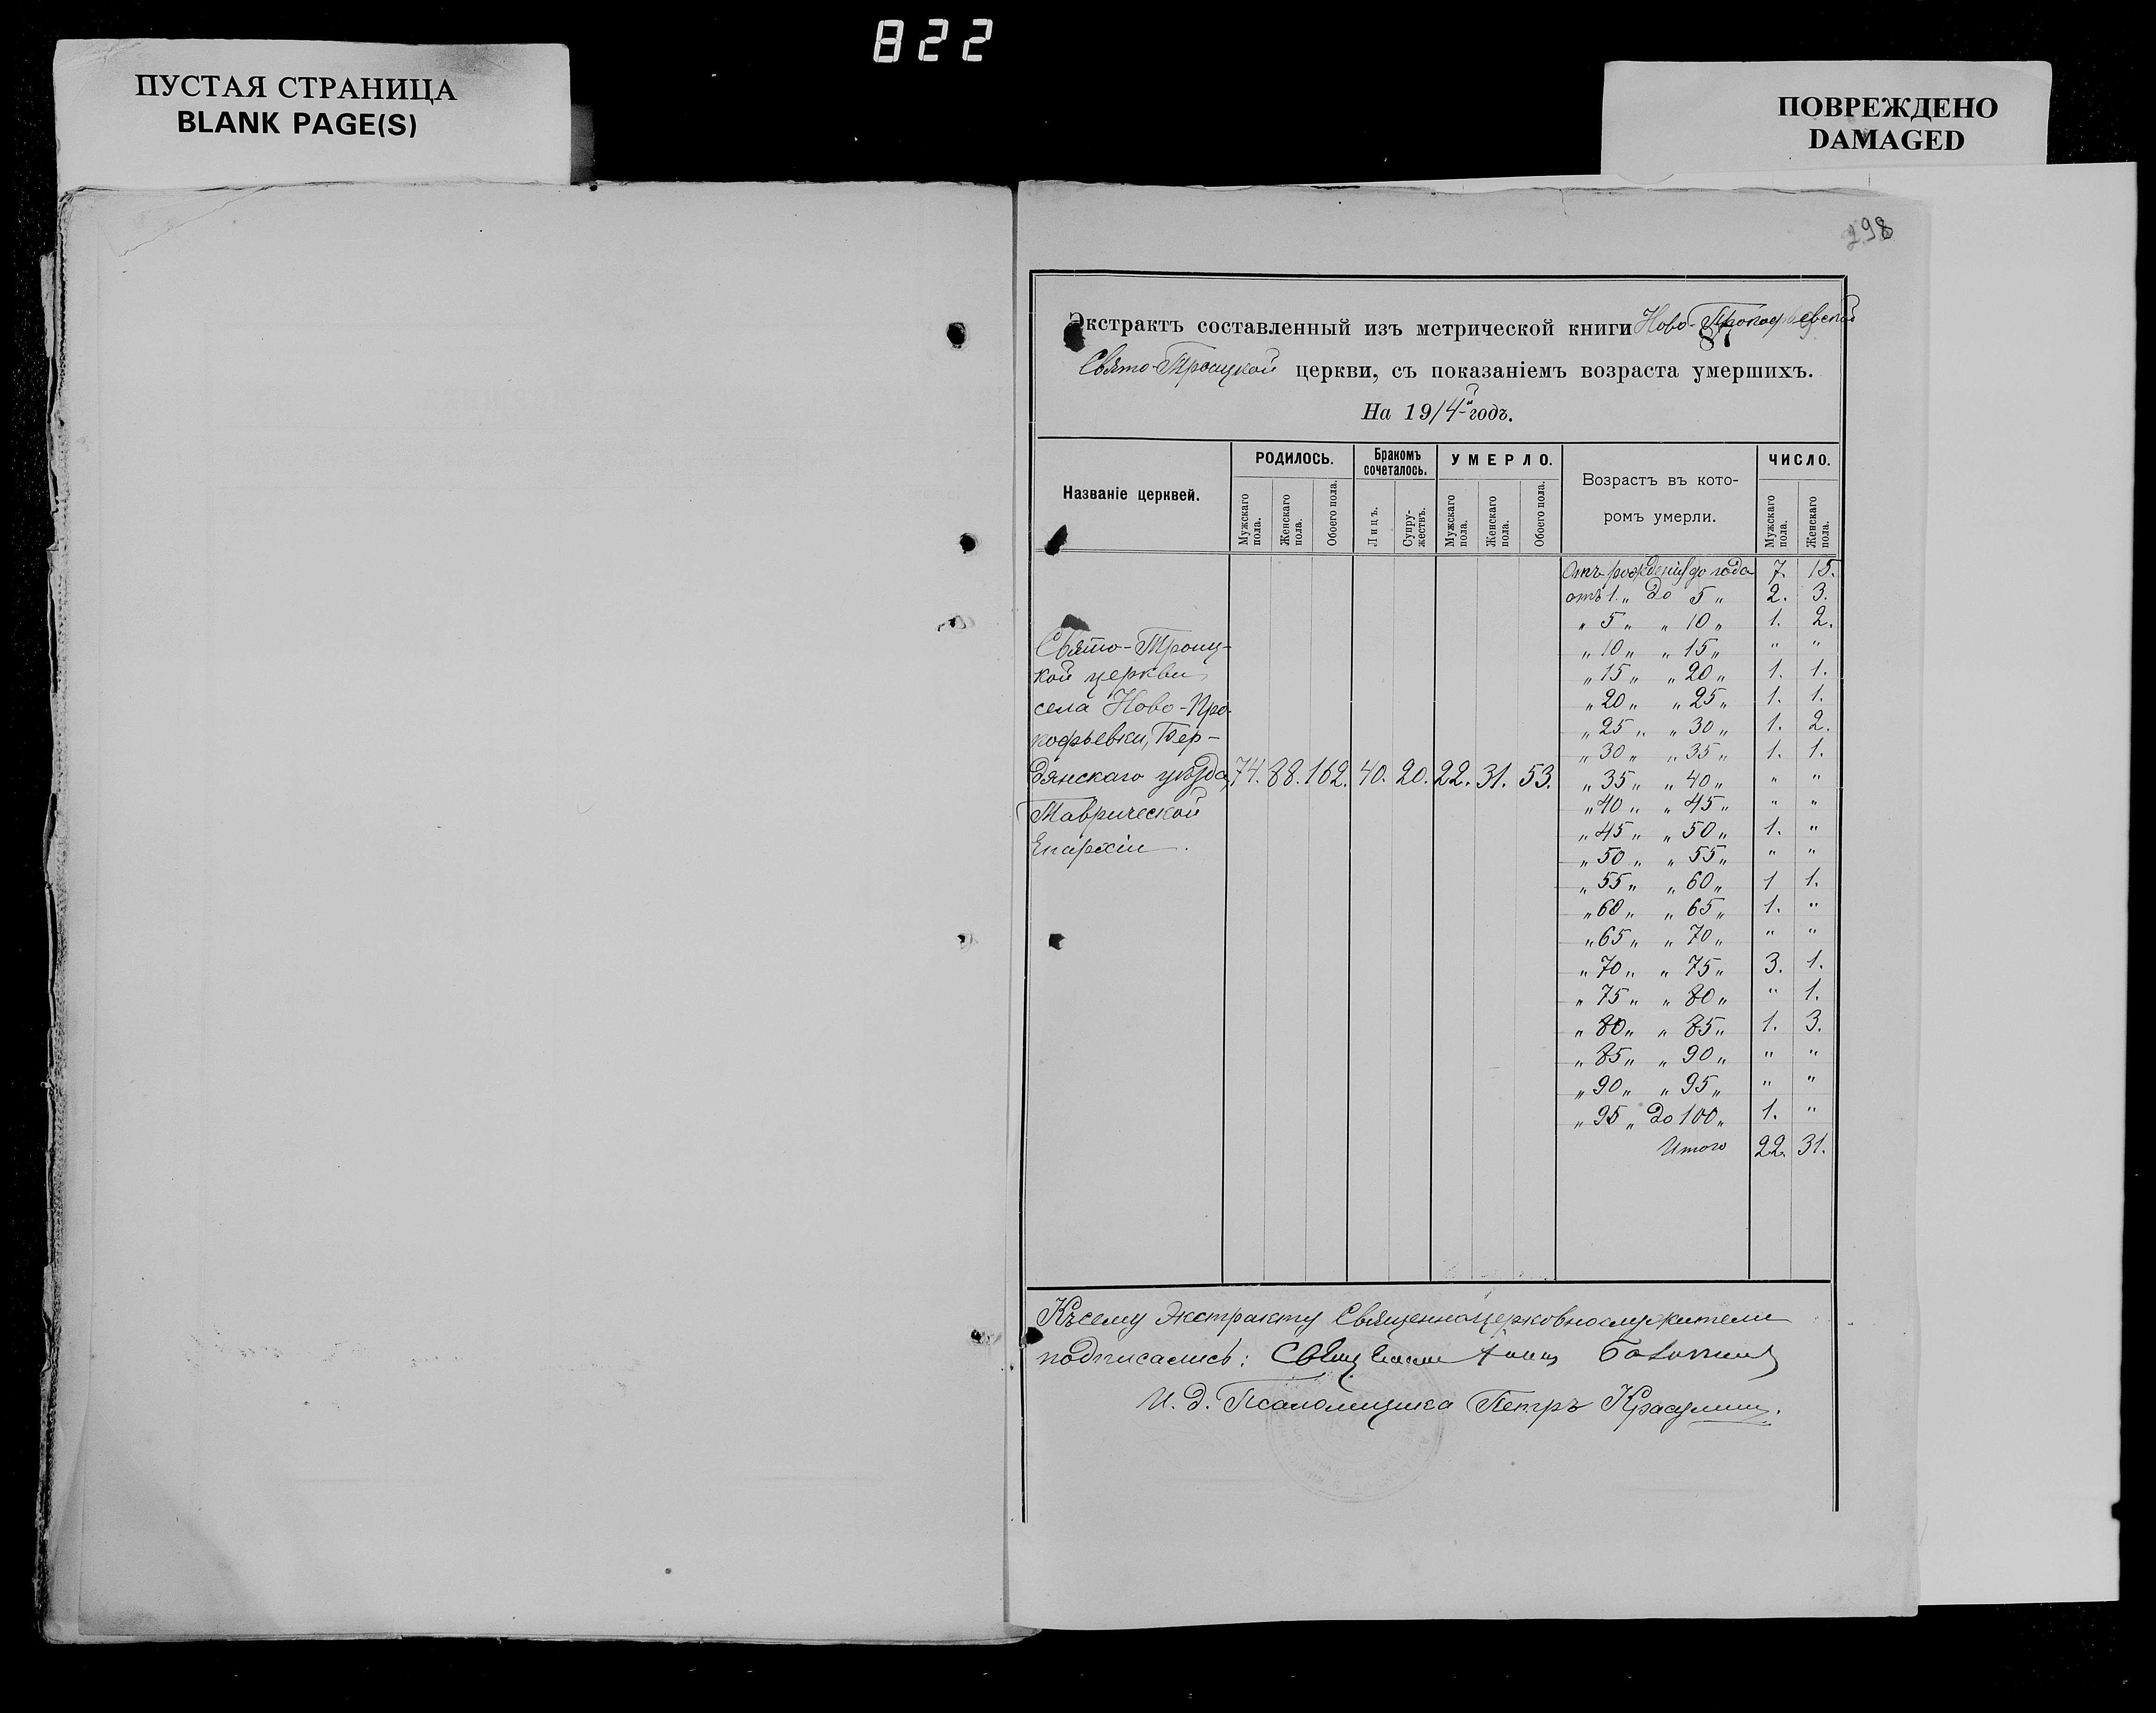 822
ПУСТАЯ СТРАНИЦА
BLANK PAGE(S)
ПОВРЕЖДЕНО
DAMAGED
298
Экстрактъ составленный изъ метрической книги Ново-Прокофьевской
Свято-Троицкой церкви, съ показаніемъ возраста умершихъ.
На 1914-й годъ.
Названіе церквей.
РОДИЛОСЬ.
Бракомъ сочеталось.
УМЕРЛО.
Возрастъ въ кото-
ромъ умерли.
ЧИСЛО.
Мужскаго пола. Женскаго пола. Обоего пола. Лицъ. Супру-жествъ. Мужскаго пола. Женскаго пола. Обоего пола. Мужскаго пола. Женскаго пола.
Свято-Троиц-
кой церкви
села Ново-Про-
кофьевки, Бер-
дянскаго уѣзда, 74. 88. 162. 40. 20. 22. 31. 53.
Таврической
Епархіи.
Отъ рожденія до года 7. 15.
отъ 1 „ до 5 „ 2. 3.
„ 5 „ „ 10 „ 1. 2.
„ 10 „ „ 15 „ „ „
„ 15 „ „ 20 „ 1. 1.
„ 20 „ „ 25 „ 1. 1.
„ 25 „ „ 30 „ 1. 2.
„ 30 „ „ 35 „ 1. 1.
„ 35 „ „ 40 „ „ „
„ 40 „ „ 45 „ „ „
„ 45 „ „ 50 „ 1. „
„ 50 „ „ 55 „ „ „
„ 55 „ „ 60 „ 1 1.
„ 60 „ „ 65 „ 1. „
„ 65 „ „ 70 „ „ „
„ 70 „ „ 75 „ 3. 1.
„ 75 „ „ 80 „ „ 1.
„ 80 „ „ 85 „ 1. 3.
„ 85 „ „ 90 „ „ „
„ 90 „ „ 95 „ „ „
„ 95 „ до 100 „ 1. „
Итого 22. 31.
Къ сему Экстракту Священноцерковнослужители
подписались: Священникъ
И. д. Псаломщика Петръ